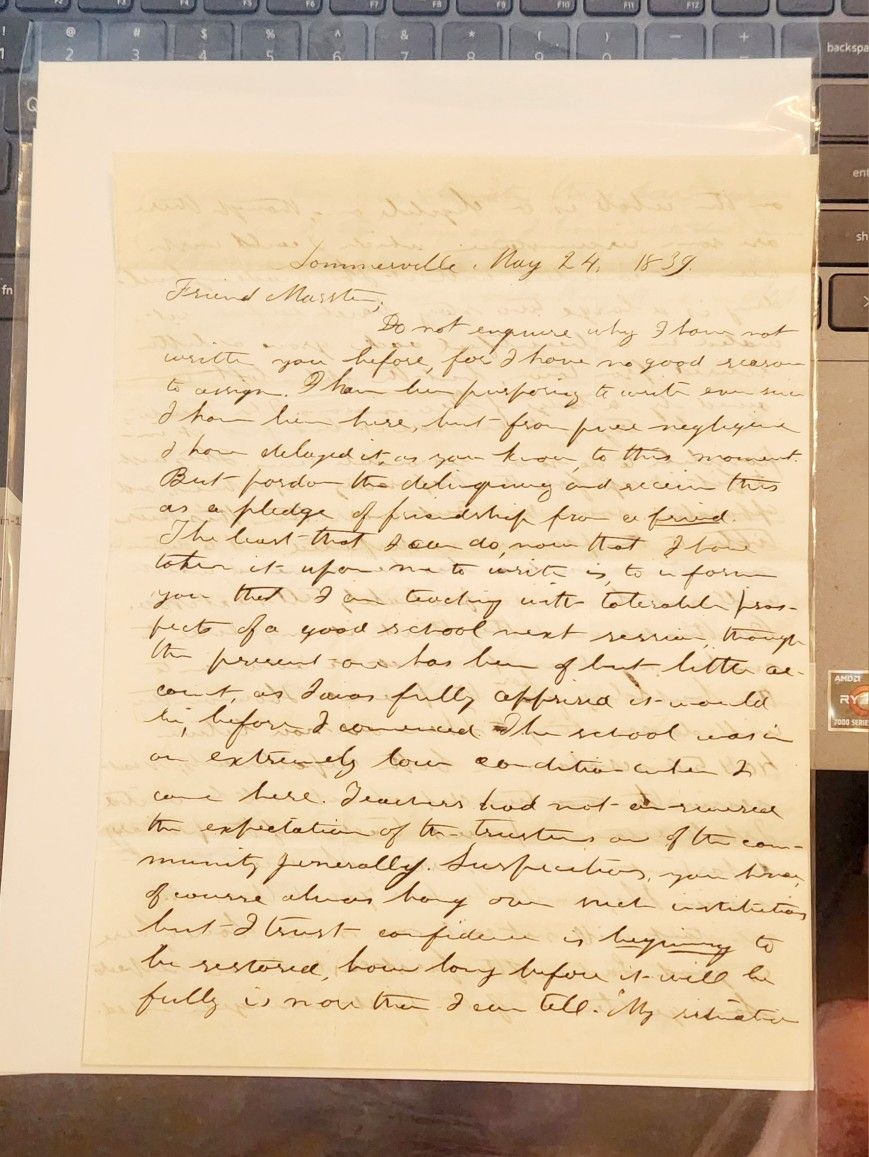 Sommerville, May 24, 1839.
Friend Marsten;
Do not enquire why I have not
written you before, for I have no good reason
to assign. I have been purposing to write ever since
I have been here, but from pure negligence
I have delayed it, as you know, to this moment.
But pardon the delinquency and receive this
as a pledge of friendship from a friend.
The least that I can do, now that I have
taken it upon me to write is, to inform
you that I am teaching with tolerable pros-
pects of a good school next session, though
the present one has been of but little ac-
count, as I was fully apprised it would
be, before I commenced. The school was in
an extremely low condition when I
came here. Teachers had not answered
the expectation of the trustees or of the com-
munity generally. Suspicions, you know,
of course always hang over such institutions
but I trust confidence is beginning to
be restored, how long before it will be
fully is more than I can tell. My situation
@ # $ % ^ & * ( ) — +
2 3 4 5 6 7 8 9 0
backspa
Q
fn
ent
sh
AMD
RY
7000 SERIE